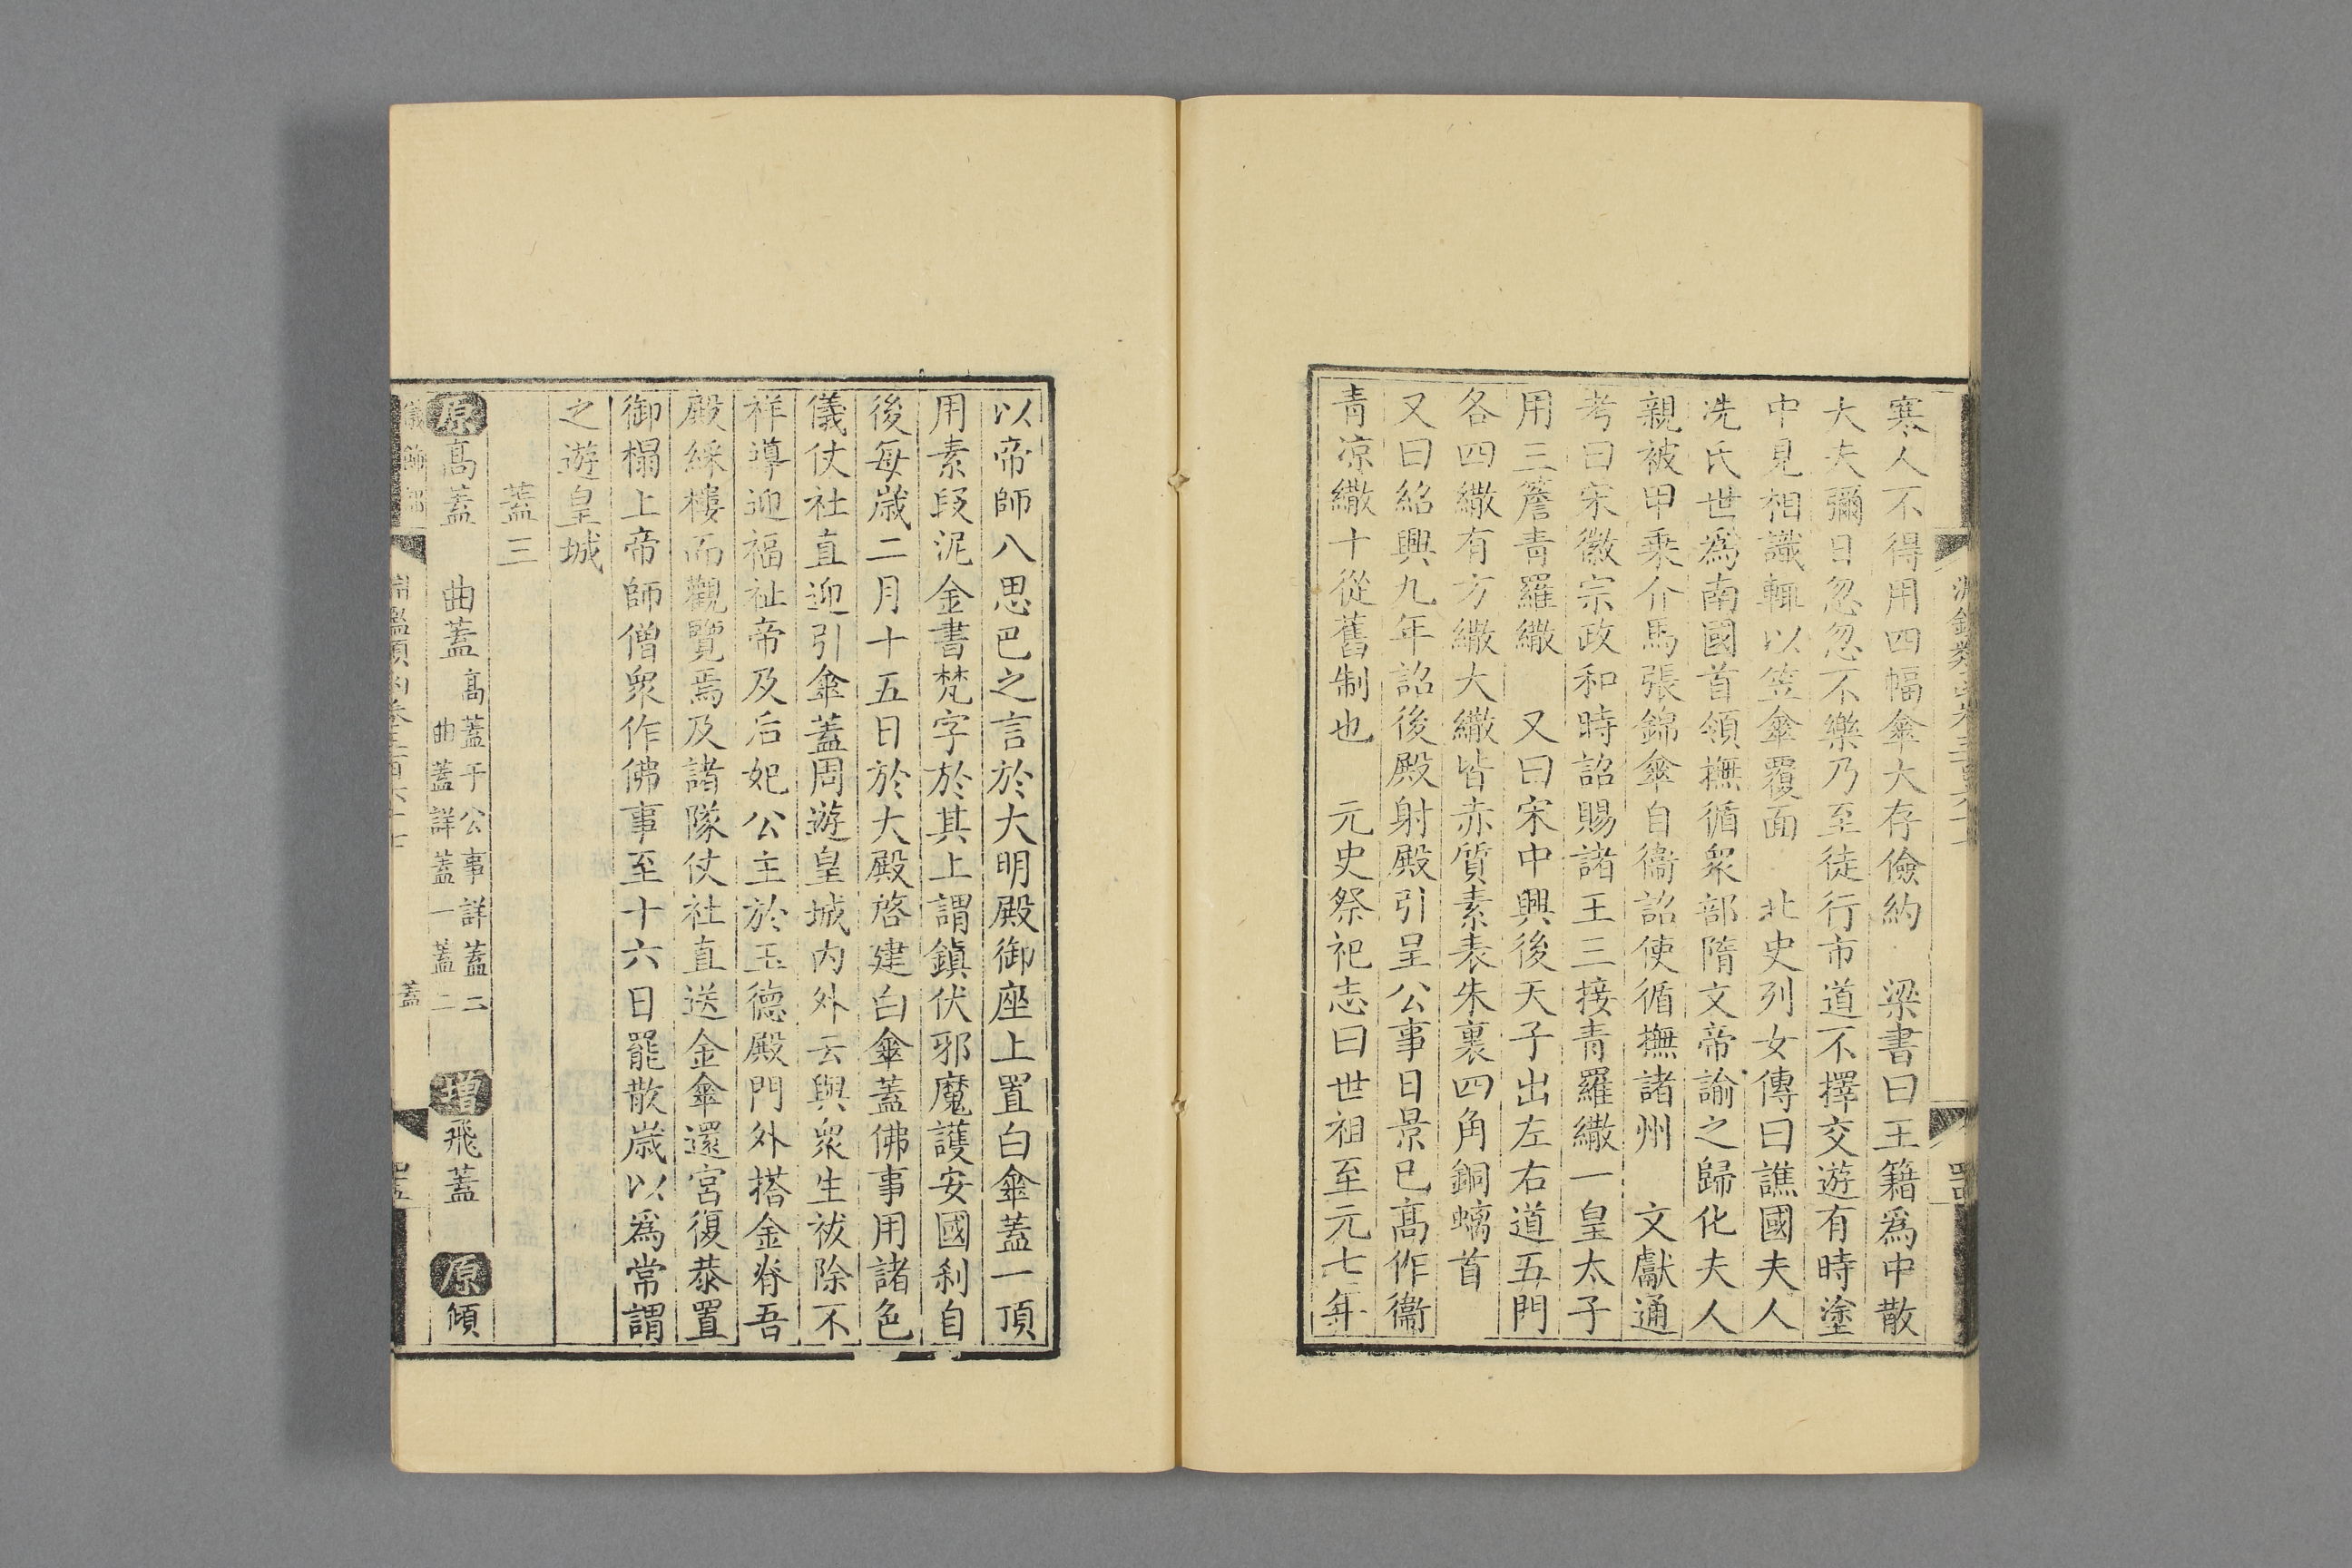 寒人不得用四幅傘大存儉約　梁書曰王籍爲中散
大夫彌日忽忽不樂乃至徒行市道不擇交遊有時塗
中見相識輒以笠傘覆面　北史列女傳曰譙國夫人
冼氏世爲南國首領撫循衆部隋文帝諭之歸化夫人
親被甲乘介馬張錦傘自衞詔使循撫諸州　文獻通
考曰宋徽宗政和時詔賜諸王三接青羅繖一皇太子
用三簷青羅繖　又曰宋中興後天子出左右道五門
各四繖有方繖大繖皆赤質素表朱裏四角銅螭首
又曰紹興九年詔後殿射殿引呈公事日景已高作衞
青凉繖十從舊制也　元史祭祀志曰世祖至元七年
以帝師八思巴之言於大明殿御座上置白傘蓋一頂
用素段泥金書梵字於其上謂鎮伏邪魔護安國利自
後每歲二月十五日於大殿啓建白傘蓋佛事用諸色
儀仗社直迎引傘蓋周遊皇城内外云與衆生祓除不
祥導迎福祉帝及后妃公主於玉德殿門外搭金脊吾
殿綵樓而觀覽焉及諸隊仗社直送金傘還宮復恭置
御榻上帝師僧衆作佛事至十六日罷散歲以爲常謂
之遊皇城
蓋三
原高蓋　曲蓋高蓋于公事詳蓋二曲蓋詳蓋一蓋二　增飛蓋　原傾
儀飾部
蓋